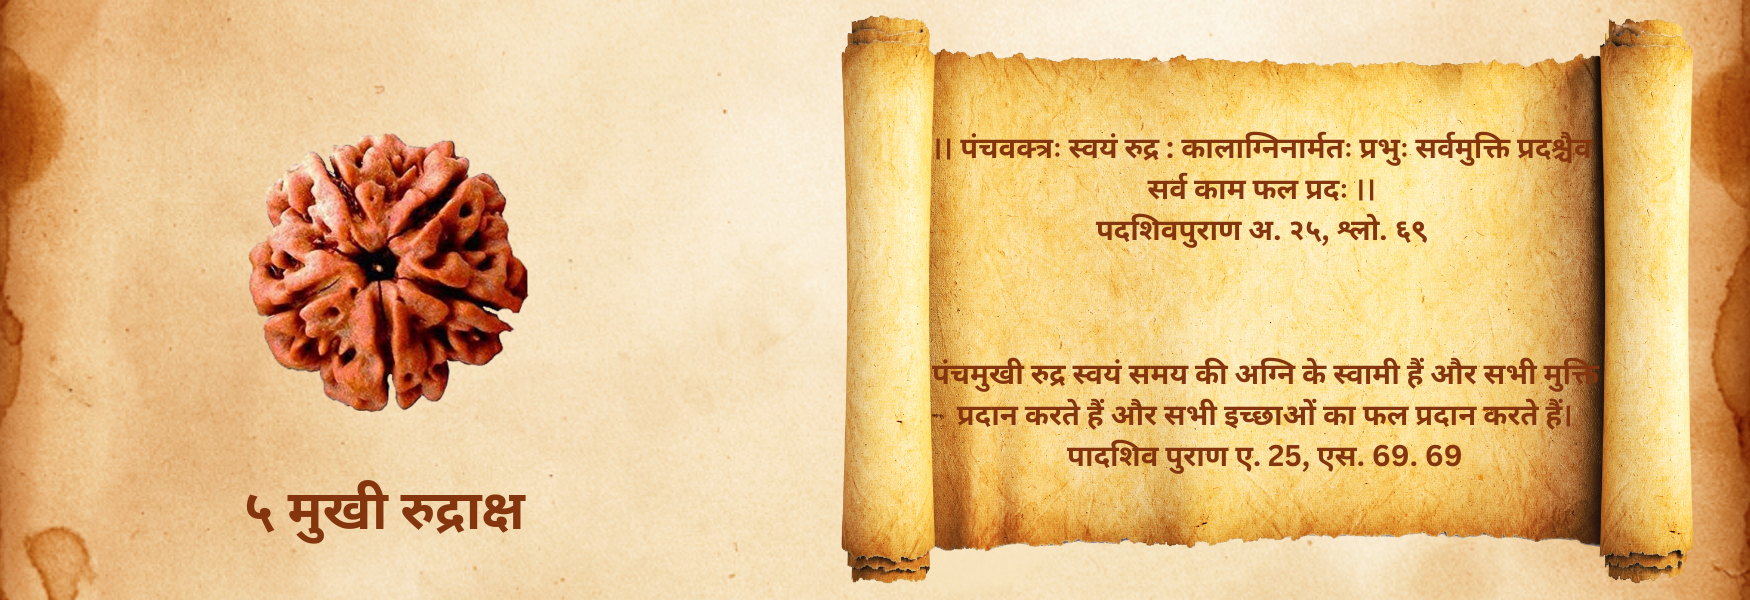 ।। पंचवक्त्रः स्वयं रुद्र : कालाग्निनार्मतः प्रभुः सर्वमुक्ति प्रदश्चैव
सर्व काम फल प्रदः ।।
पदशिवपुराण अ. २५, श्लो. ६९
पंचमुखी रुद्र स्वयं समय की अग्नि के स्वामी हैं और सभी मुक्ति
प्रदान करते हैं और सभी इच्छाओं का फल प्रदान करते हैं।
पादशिव पुराण ए. 25, एस. 69. 69
५ मुखी रुद्राक्ष